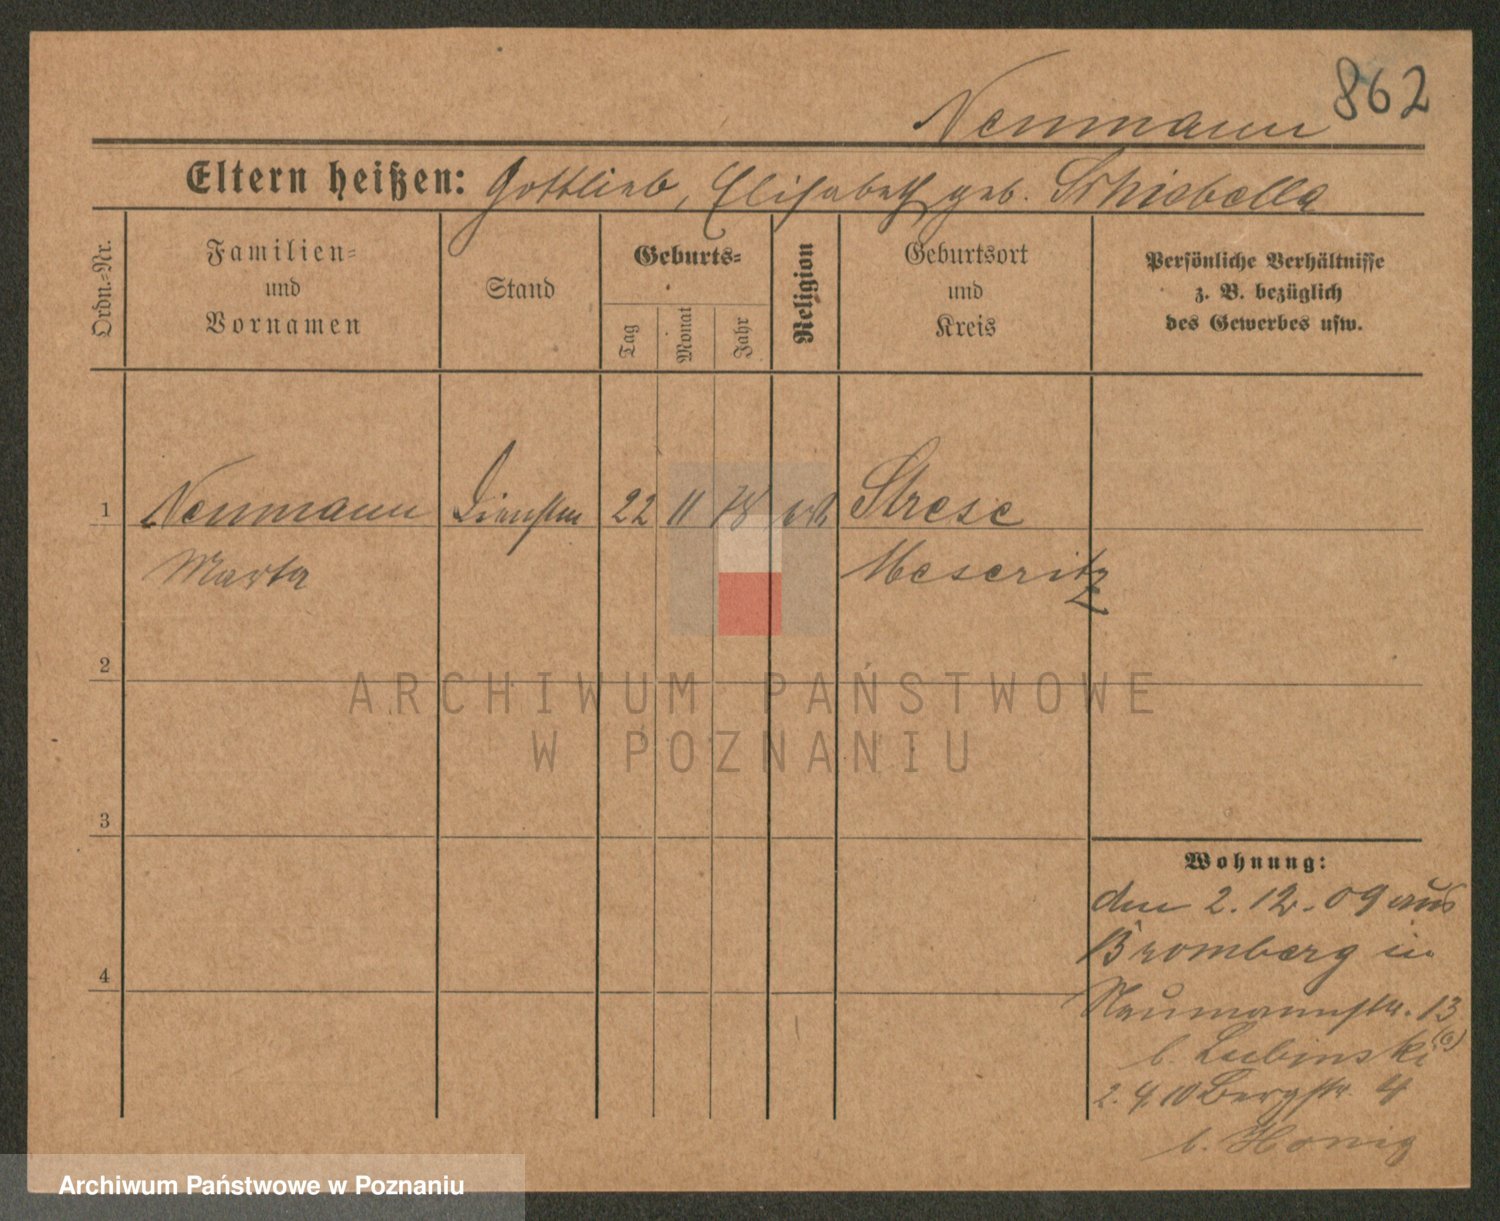 862
Neumann
Eltern heißen: Gottlieb, Elisabeth geb. Schiebella
Ordn.-Nr.
Familien- und Vornamen
Stand
Geburts-
Tag
Monat
Jahr
Religion
Geburtsort und Kreis
Persönliche Verhältnisse
z. B. bezüglich
des Gewerbes usw.
1 Neumann 22 11 78 Strese
Marta Meseritz
2
3
4
Wohnung:
den 2. 12. 09 aus
Bromberg in
Naumannstr. 13
b. Lubinski
2. 4. 10 Bergstr. 4
b. Honig
ARCHIWUM PAŃSTWOWE
W POZNANIU
Archiwum Państwowe w Poznaniu